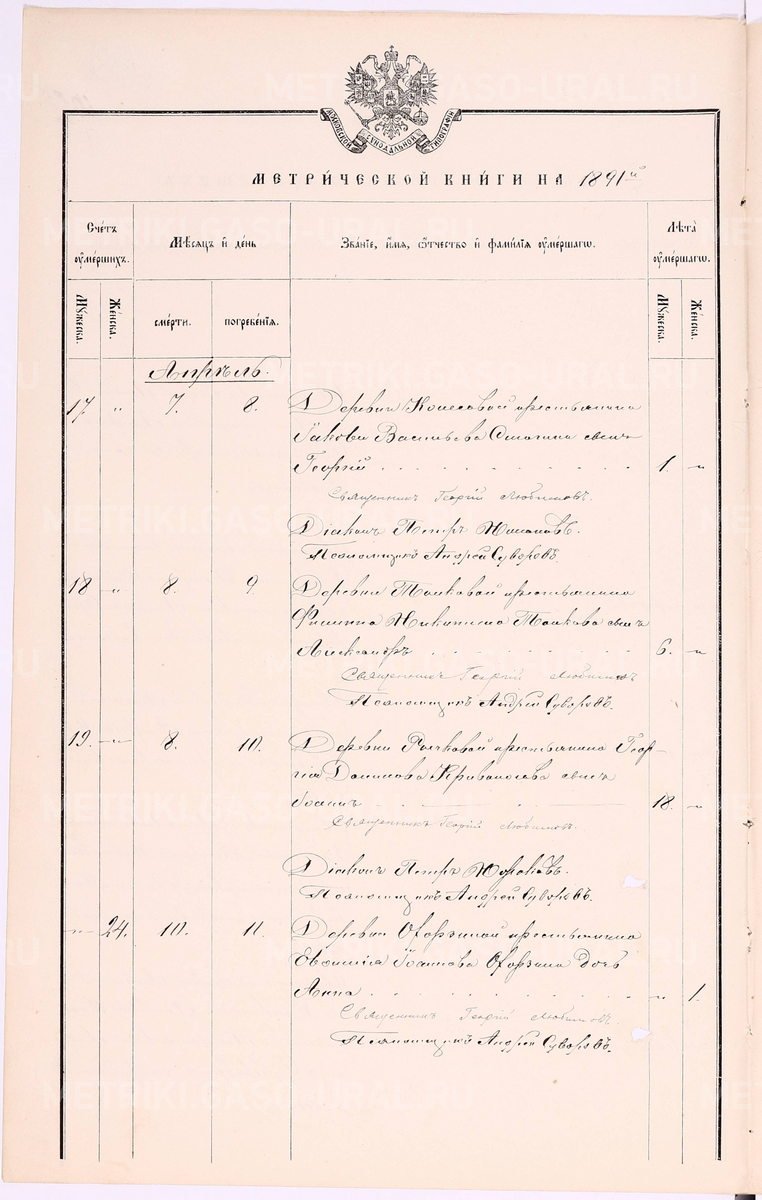 METRIKI.GASO-URAL.RU
МОСКОВСКОЙ СѴНОДАЛЬНОЙ ТИПОГРАФІИ
МЕТРИ́ЧЕСКОЙ КНИ́ГИ НА 1891й
Сче́тъ ᲂу҆ме́ршихъ.
Мѣ́сѧцъ и҆ де́нь
Зва́нїе, и҆́мѧ, ѻ҆́тчество и҆ фами́лїѧ ᲂу҆ме́ршагѡ.
Лѣ́та ᲂу҆ме́ршагѡ.
Мꙋ́жеска. Же́нска. сме́рти. погребе́нїѧ. Мꙋ́жеска. Же́нска.
Апрѣль.
17. „ 7. 8. Деревни крестьянина
Іакова Васильева сынъ
Георгій 1. „
Священникъ Георгій Любимовъ.
Діаконъ Петръ
Псаломщикъ Андрей Суворовъ.
18 „ 8. 9. Деревни крестьянина
Филиппа Никитина сынъ
Александръ 6. „
Священникъ Георгій Любимовъ
Псаломщикъ Андрей Суворовъ.
19. „ 8. 10. Деревни крестьянина Геор-
гія Данилова сынъ
Іоаннъ 18. „
Священникъ Георгій Любимовъ.
Діаконъ Петръ
Псаломщикъ Андрей Суворовъ.
„ 24. 10. 11. Деревни крестьянина
Евфимія Іоаннова дочь
Анна „ 1.
Священникъ Георгій Любимовъ.
Псаломщикъ Андрей Суворовъ.